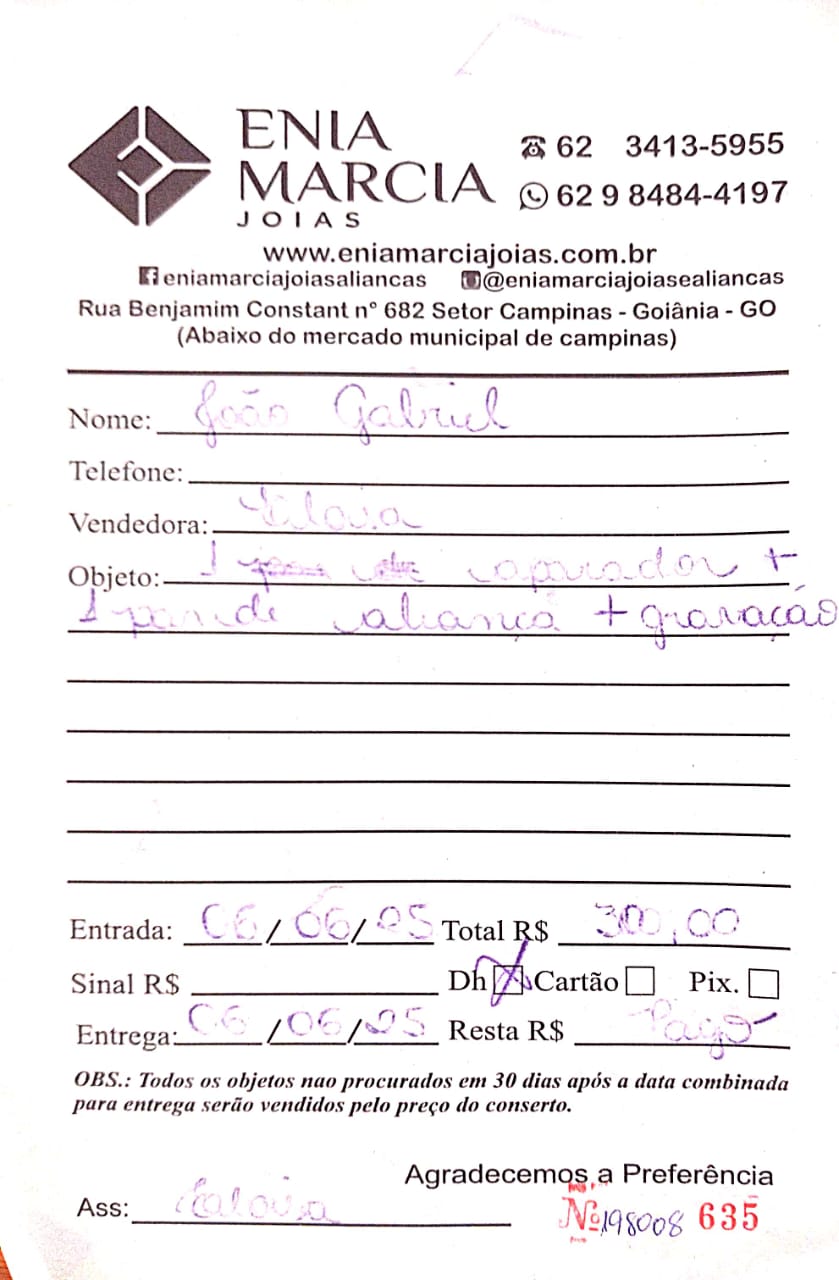 ENIA
MARCIA
JOIAS
62 3413-5955
62 9 8484-4197
www.eniamarciajoias.com.br
eniamarciajoiasaliancas @eniamarciajoiasealiancas
Rua Benjamim Constant n° 682 Setor Campinas - Goiânia - GO
(Abaixo do mercado municipal de campinas)
Nome: João Gabriel
Telefone:
Vendedora:
Objeto: 1 aparador +
1 par de aliança + gravação
Entrada: 06/06/25 Total R$ 300,00
Sinal R$ Dh X Cartão Pix.
Entrega: 06/06/25 Resta R$ Pago
OBS.: Todos os objetos nao procurados em 30 dias após a data combinada
para entrega serão vendidos pelo preço do conserto.
Agradecemos a Preferência
Ass:
Nº 198008 635